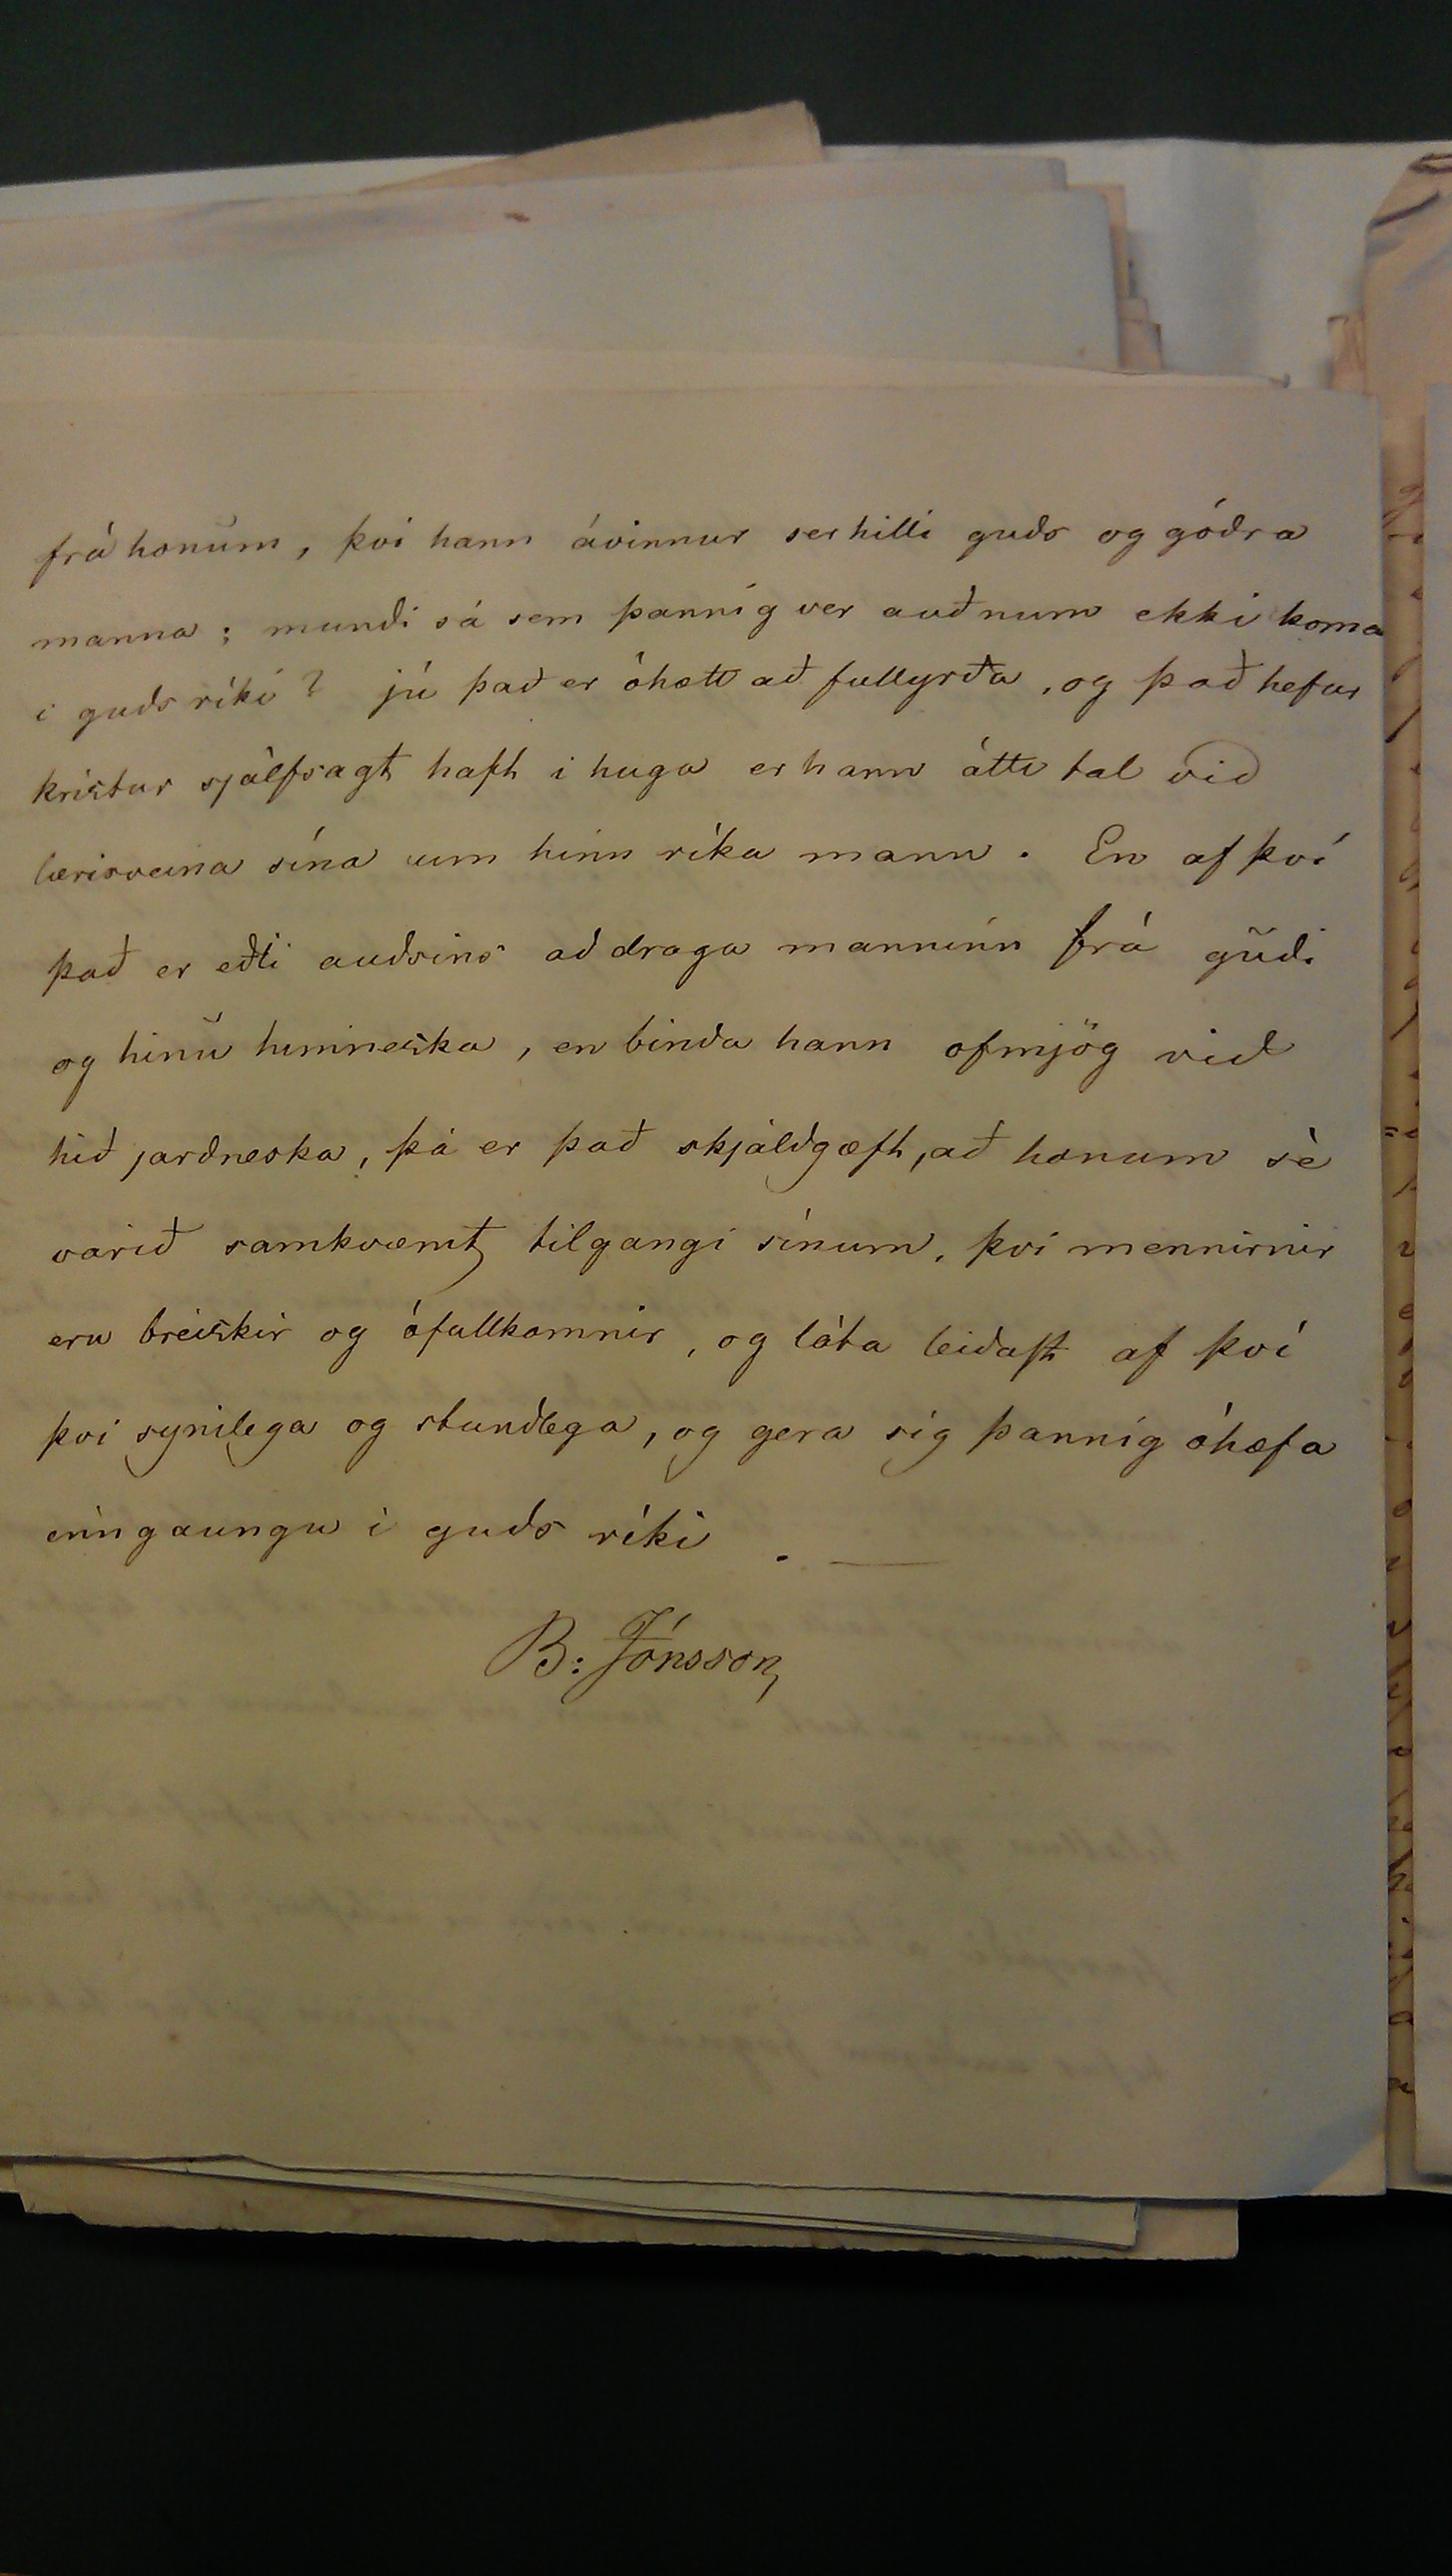 frá honum, því hann ávinnur ser hilli guðs og góðra
manna; mundi sá sem þannig ver auðnum ekki koma
i guðs ríki? jú það er óhætt að fullyrða, og það hefur
kristur sjálfsagt haft i huga er hann átti tal við
lærisveina sína um hinn ríka mann. En af því
það er eðli auðsins að draga manninn frá guði
og hinu himneska, en binda hann ofmjög við
hið jarðneska, þá er það skjáldgæft, að honum sè
varið samkvæmt tilgangi sínum, því mennirnir
eru breiskir og ófullkomnir, og láta leiðast af því
því synilega og stundlega, og gera sig þannig óhæfa
inngaungu i guðs ríki . —
B: Jónsson